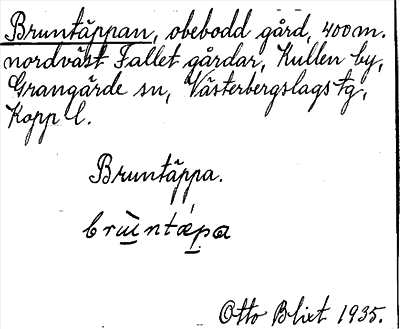 Bruntäppan, obebodd gård, 400 m.
nordväst Fallet gårdar, Kullen by,
Grangärde sn, Västerbergslags tg,
Kopp l.
Bruntäppa.
brùntæpa
Otto Blixt 1935.